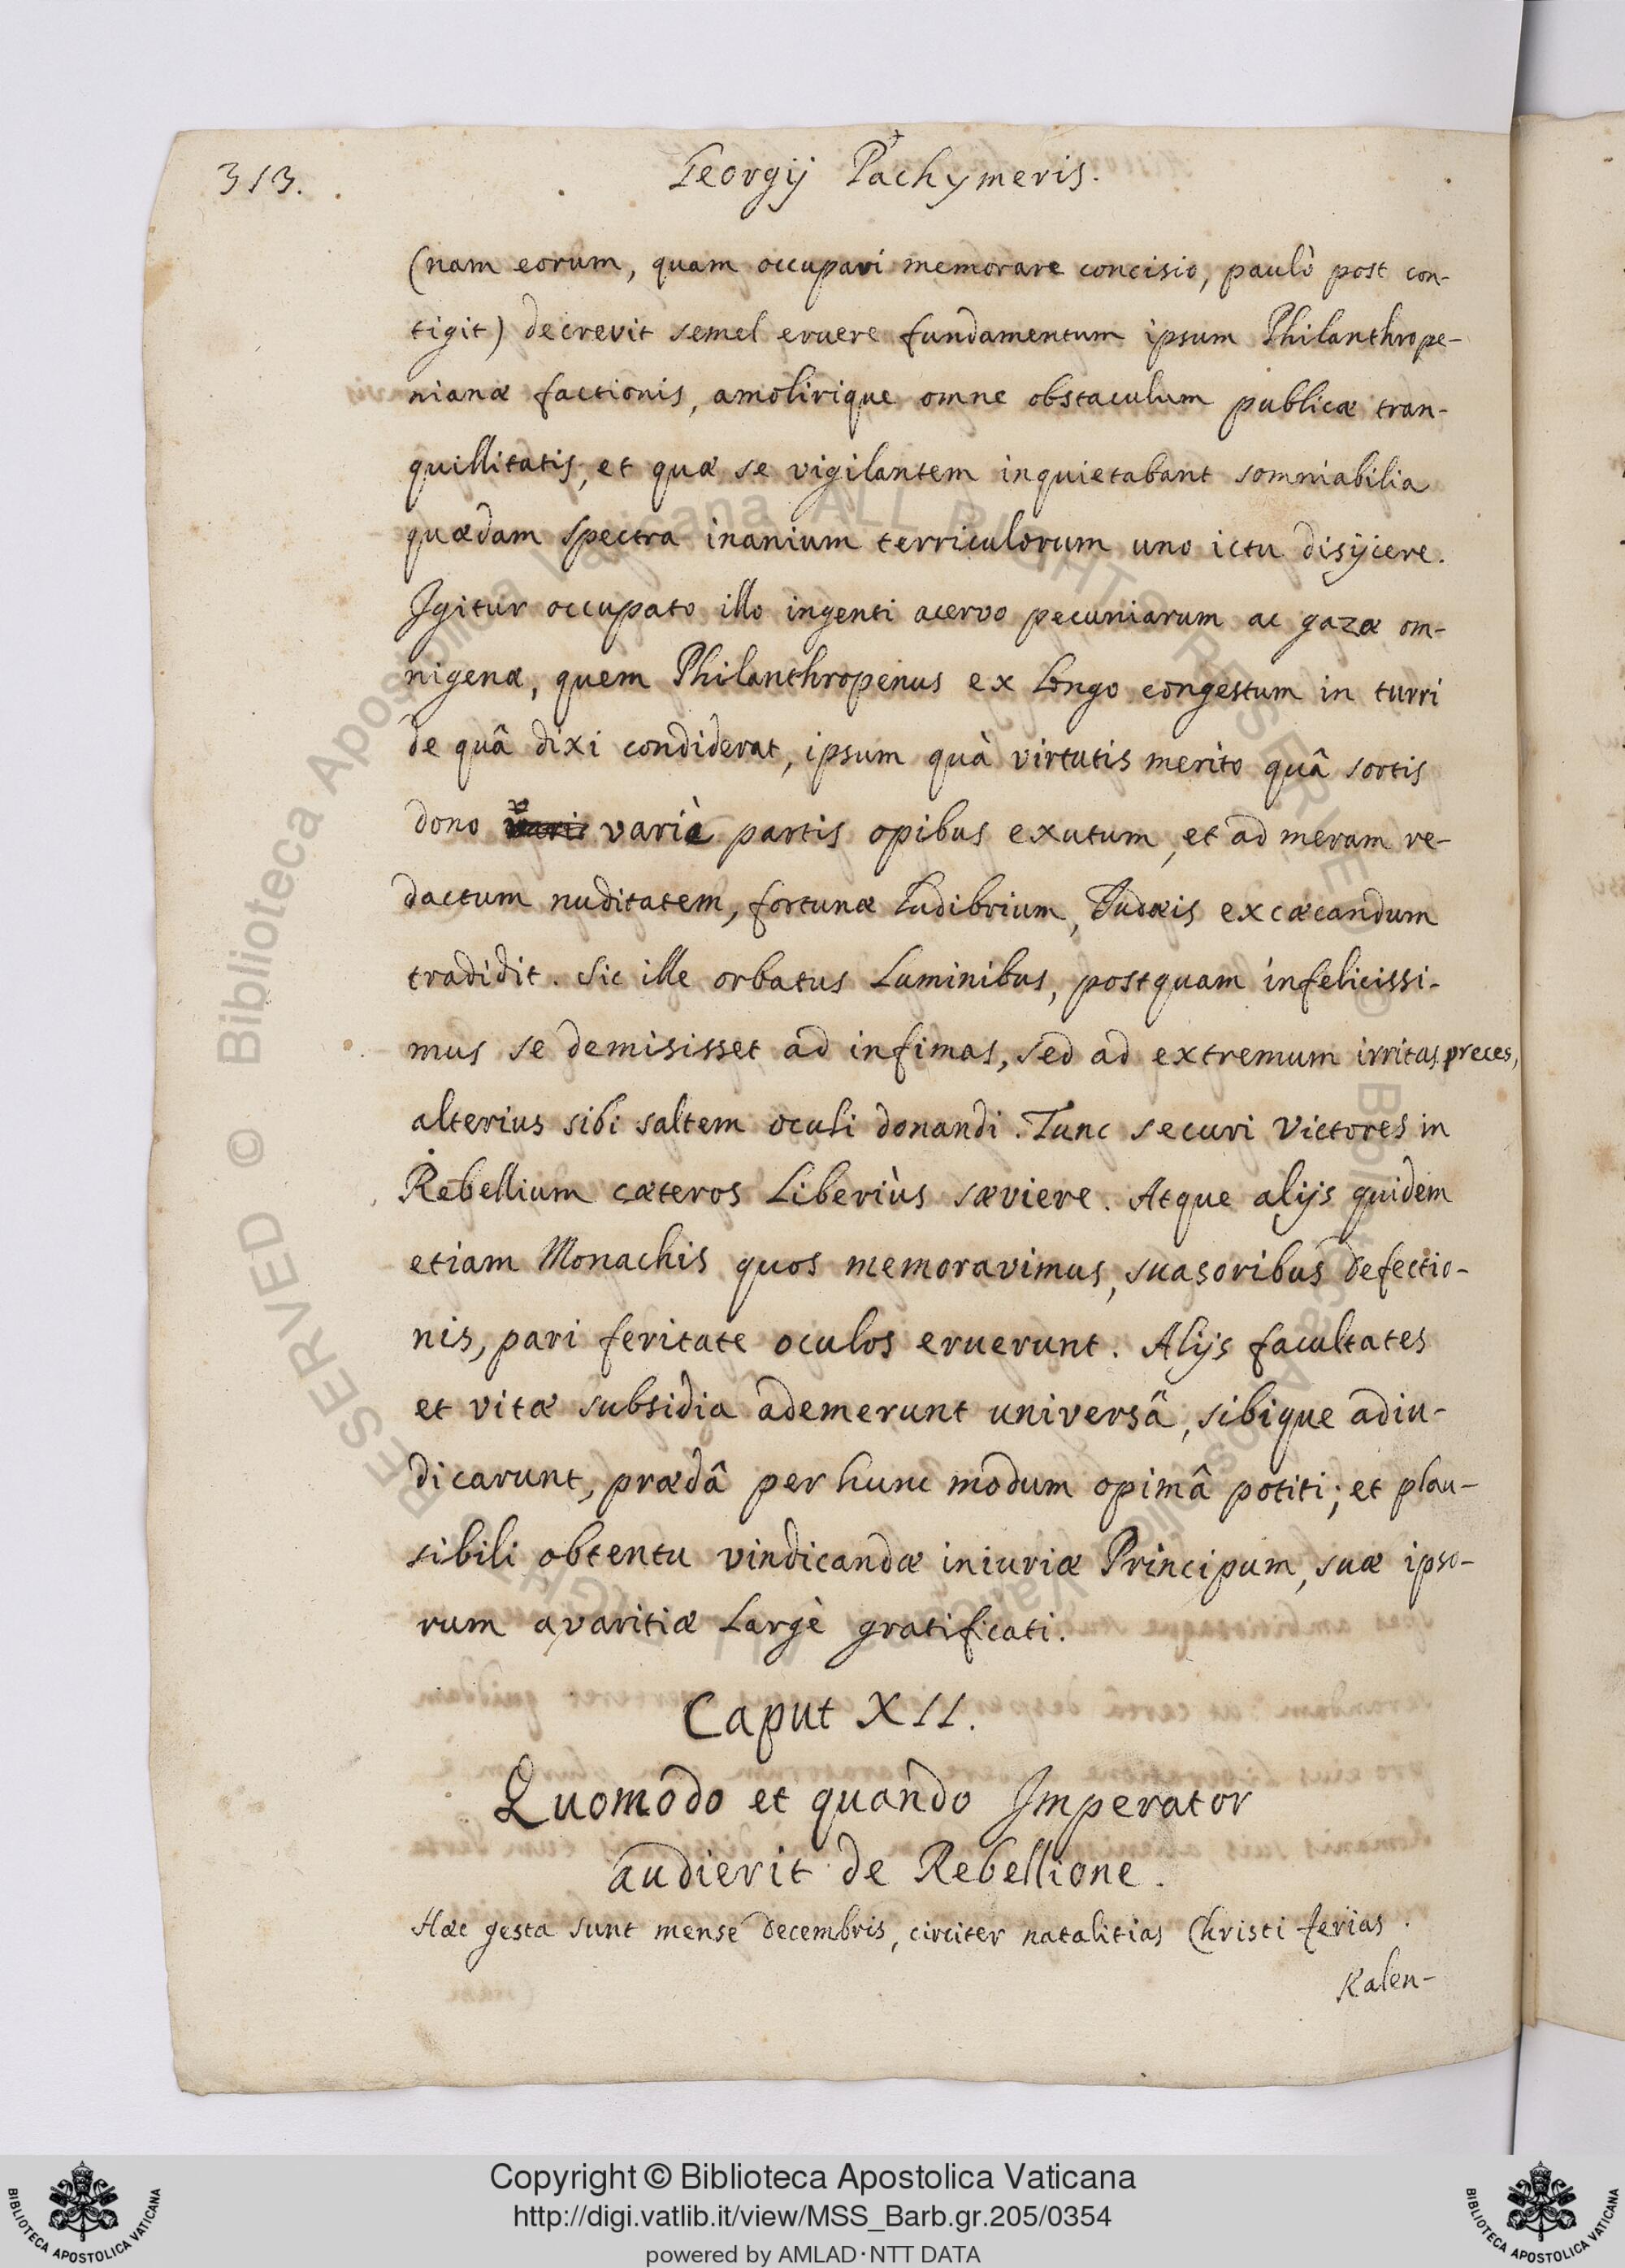 313.
Georgij Pachymeris.
(nam eorum, quam occupavi memorare concisio, paulò post con-
tigit) decrevit semel eruere fundamentum ipsum Philanthrope-
nianæ factionis, amolirique omne obstaculum publicæ tran-
quillitatis; et quæ se vigilantem inquietabant somniabilia
quædam spectra inanium terriculorum uno ictu disijcere.
Igitur occupato illo ingenti acervo pecuniarum ac gazæ om-
nigenæ, quem Philanthropenus ex longo congestum in turri
de quâ dixi condiderat, ipsum quà virtutis merito quâ sortis
dono variè partis opibus exutum, et ad meram re-
dactum nuditatem, fortunæ Ludibrium, Iudæis excæcandum
tradidit. Sic ille orbatus Luminibus, postquam infelicissi-
mus se demisisset ad infimas, sed ad extremum irritas preces,
alterius sibi saltem oculi donandi. Tunc securi Victores in
Rebellium cæteros Liberiùs sæviere. Atque alijs quidem
etiam Monachis quos memoravimus, suasoribus defectio-
nis, pari feritate oculos eruerunt. Alijs facultates
et vitæ subsidia ademerunt universâ, sibique adiu-
dicarunt, prædâ per hunc modum opimâ potiti; et plau-
sibili obtentu vindicandæ iniuriæ Principum, suæ ipso-
rum avaritiæ Largè gratificati.
Caput XII.
Quomodo et quando Imperator
audierit de Rebellione.
Hæc gesta sunt mense decembris, circiter natalitias Christi ferias.
Kalen-
© Biblioteca Apostolica Vaticana ALL RIGHTS RESERVED
Copyright © Biblioteca Apostolica Vaticana
http://digi.vatlib.it/view/MSS_Barb.gr.205/0354
powered by AMLAD·NTT DATA
BIBLIOTECA APOSTOLICA VATICANA
BIBLIOTECA APOSTOLICA VATICANA